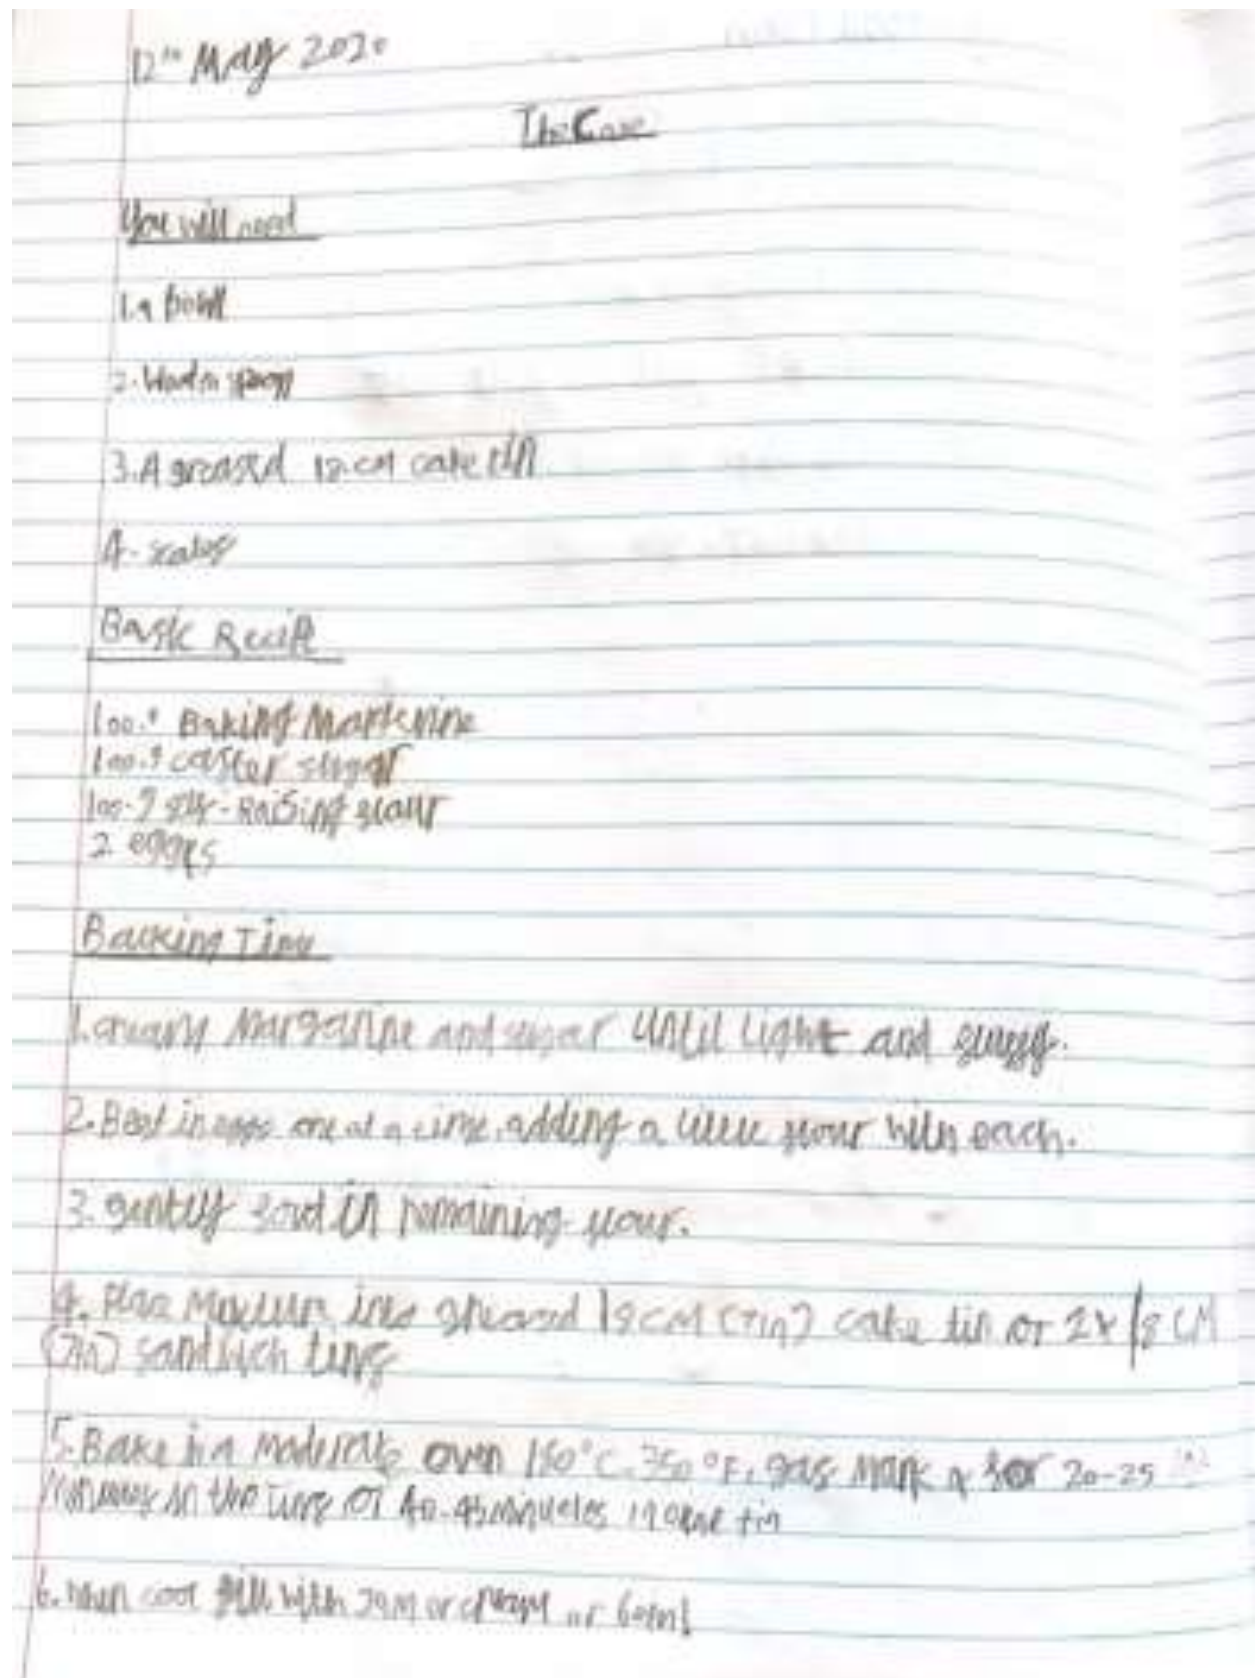 12th May 2020
The Cake
You will need
1. a bowl
2. Wooden spoon
3. A greased 18.cm cake tin
4. scales
Basic Recipe
100.g Baking Margerine
100.g caster sugar
100.g self-Raising flour
2 egges
Backing Time
1. cream Margarine and sugar until light and fluffy.
2. Beat in eggs one at a time, adding a little flour with each.
3. gently fold in remaining flour.
4. Place Mixture into greased 18cm (7in) cake tin or 2x 18 cm
(7in) sandwich tins
5. Bake in a moderate oven 180°C, 350°F, gas mark 4 for 20-25
in the tins or 40-45 minutes in one tin
6. when cool fill with jam or cream or both!